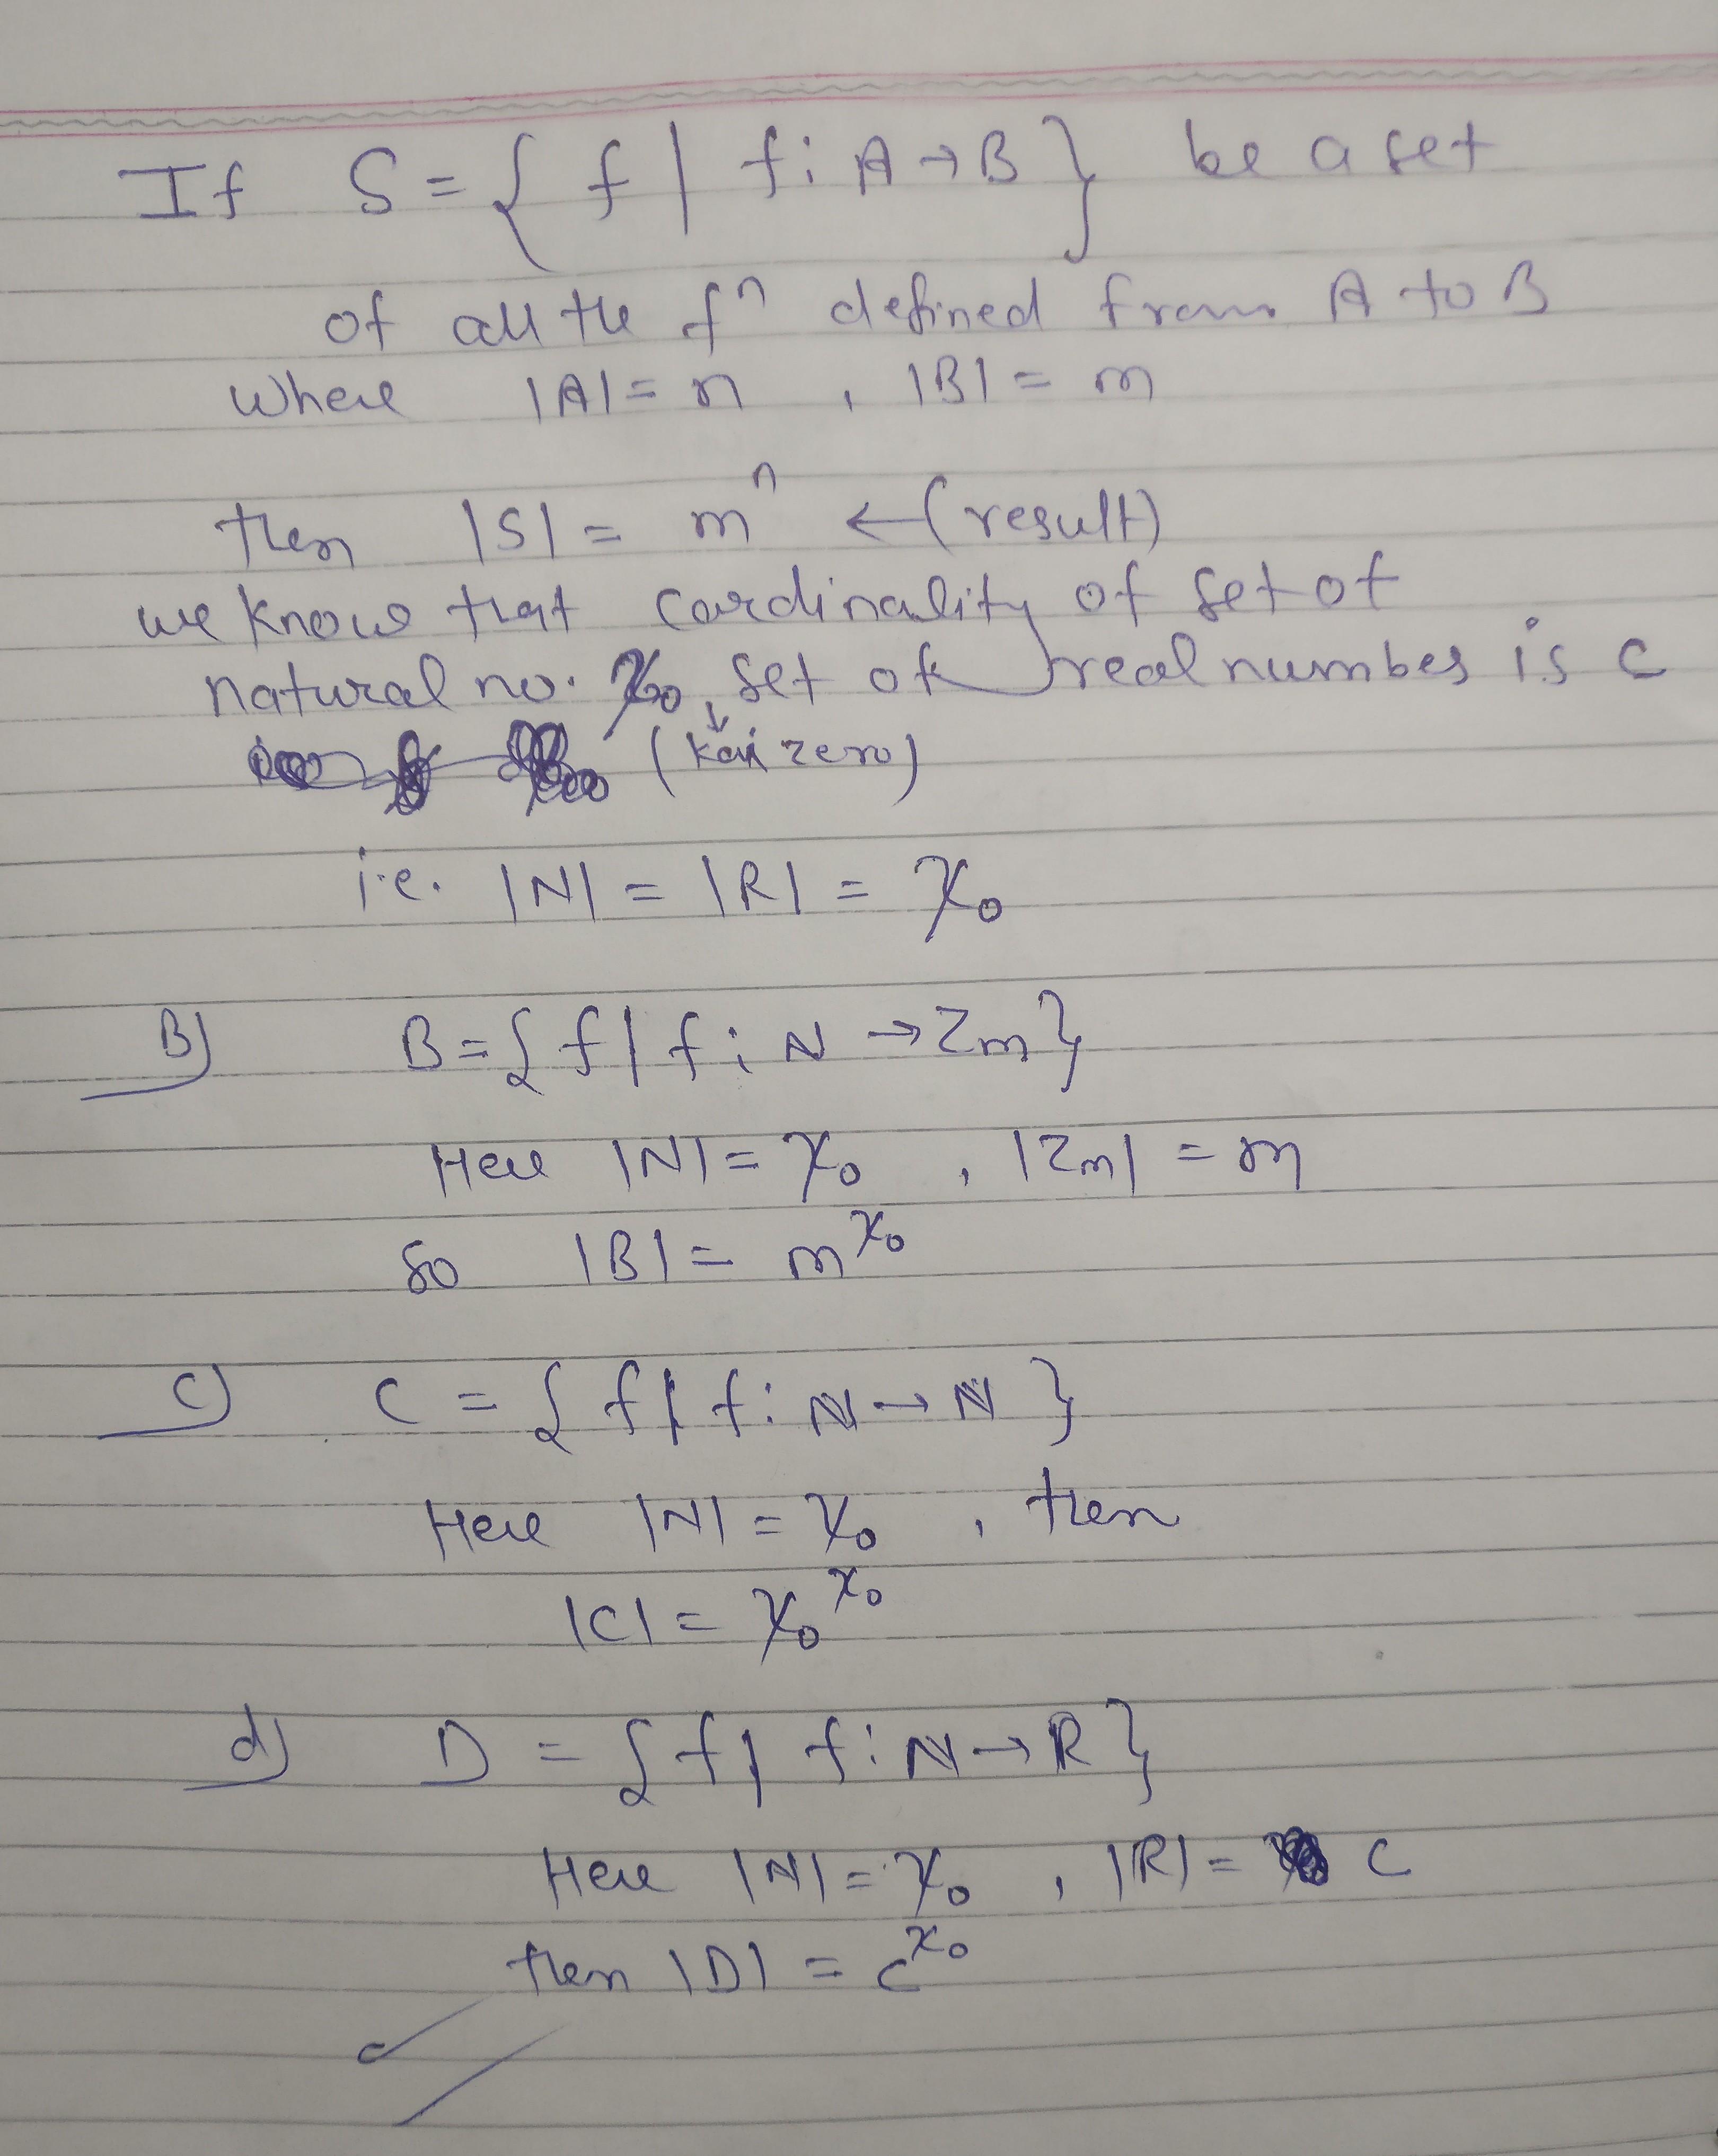 If S = { f | f : A → B } be a set
of all the fⁿ defined from A to B
where |A| = n , |B| = m
then |S| = mⁿ ← (result)
we know that cardinality of set of
natural no. χ₀, set of real number is c
(kai zero)
i.e. |N| = |R| = χ₀
B) B = { f | f : N → Zm }
Here |N| = χ₀ , |Zm| = m
so |B| = m^χ₀
c) C = { f | f : N → N }
Here |N| = χ₀ , then
|C| = χ₀^χ₀
d) D = { f | f : N → R }
Here |N| = χ₀ , |R| = c
then |D| = c^χ₀